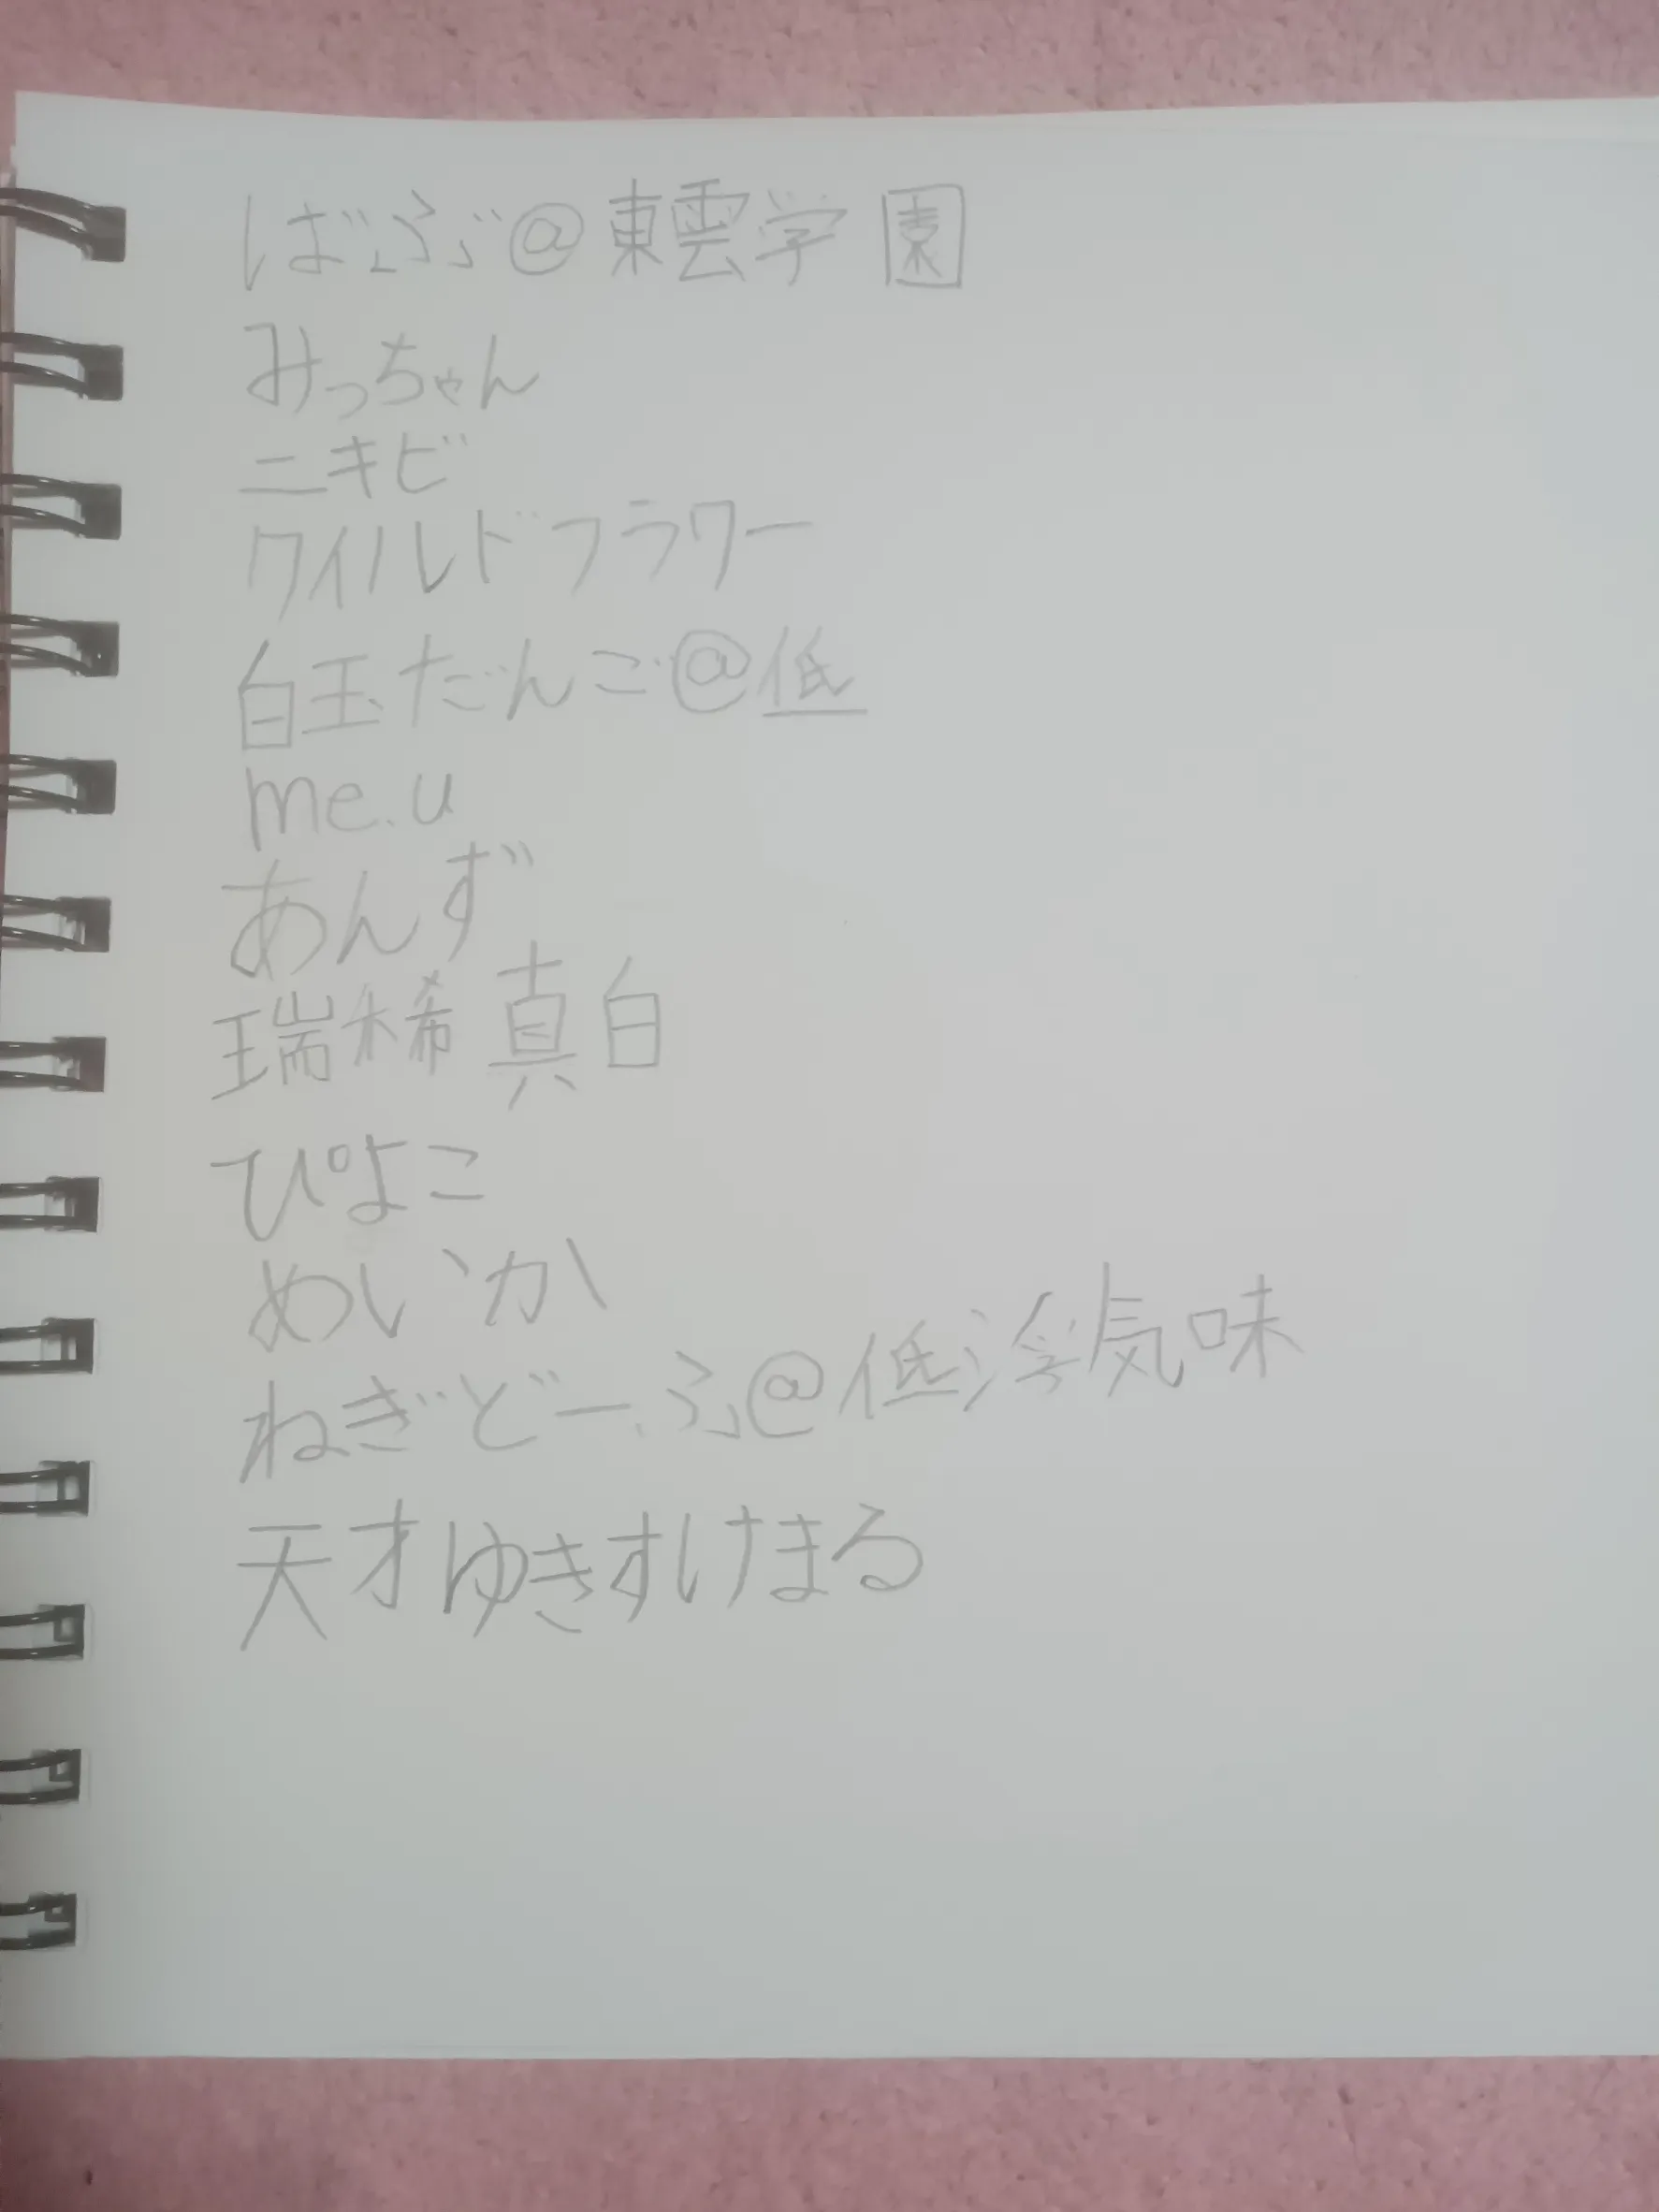 ばぶ@東雲学園
みっちゃん
ニキビ
ワイルドフラワー
白玉だんご@低
me.u
あんず
瑞稀真白
ぴよこ
めいか
ねぎどーふ@低浮気味
天才ゆきすけまる